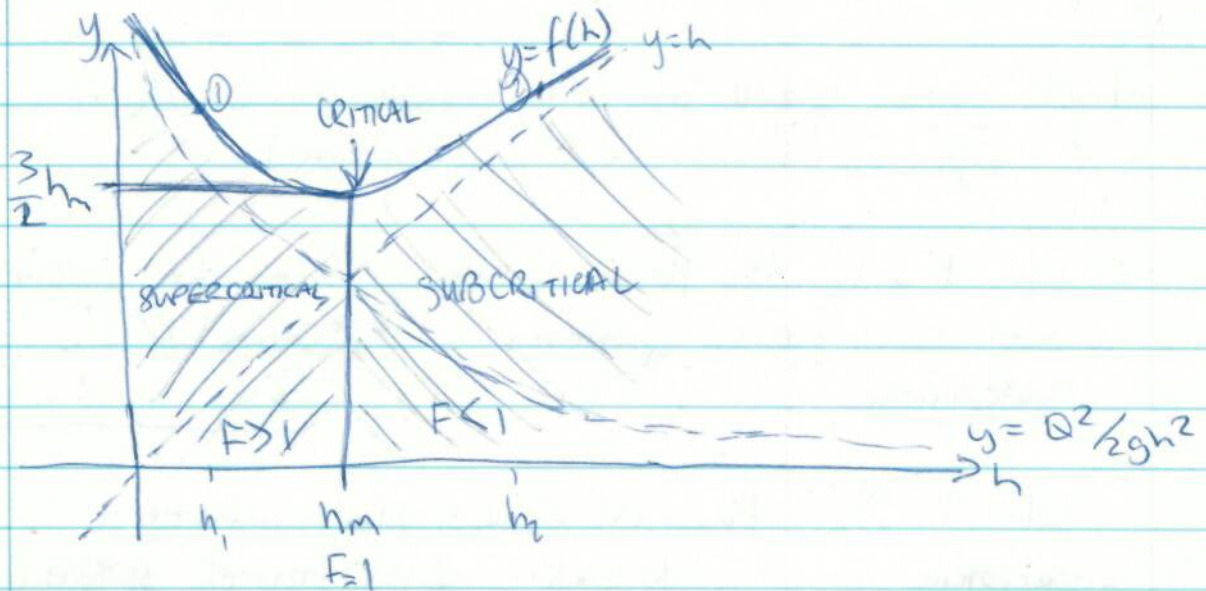 y
y=f(h)
y=h
①
②
CRITICAL
3/2 hm
SUPERCRITICAL
SUBCRITICAL
F>1
F<1
y = Q²/2gh²
h
h₁
hm
h₂
F=1